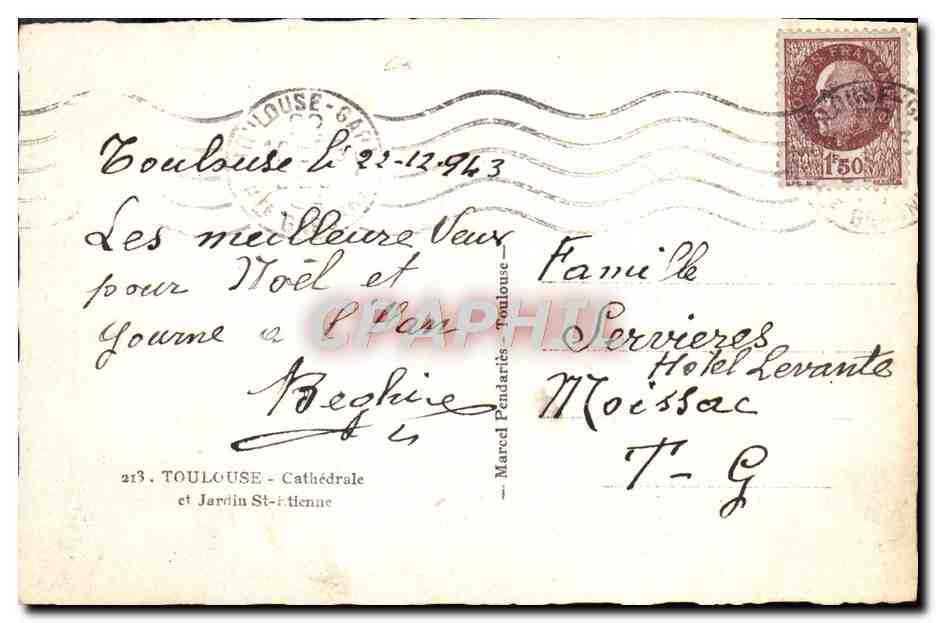 TOULOUSE-GARE
POSTES FRANÇAISES
1F50
Toulouse li 22-12-943
Les meilleure Veux
pour Noël et
Journe a l'Van
Beghire
213. TOULOUSE - Cathédrale
et Jardin St-Etienne
— Marcel Pendariès - Toulouse —
Famille
Servieres
Hotel Levante
Moissac
T-G
CPAPHIL